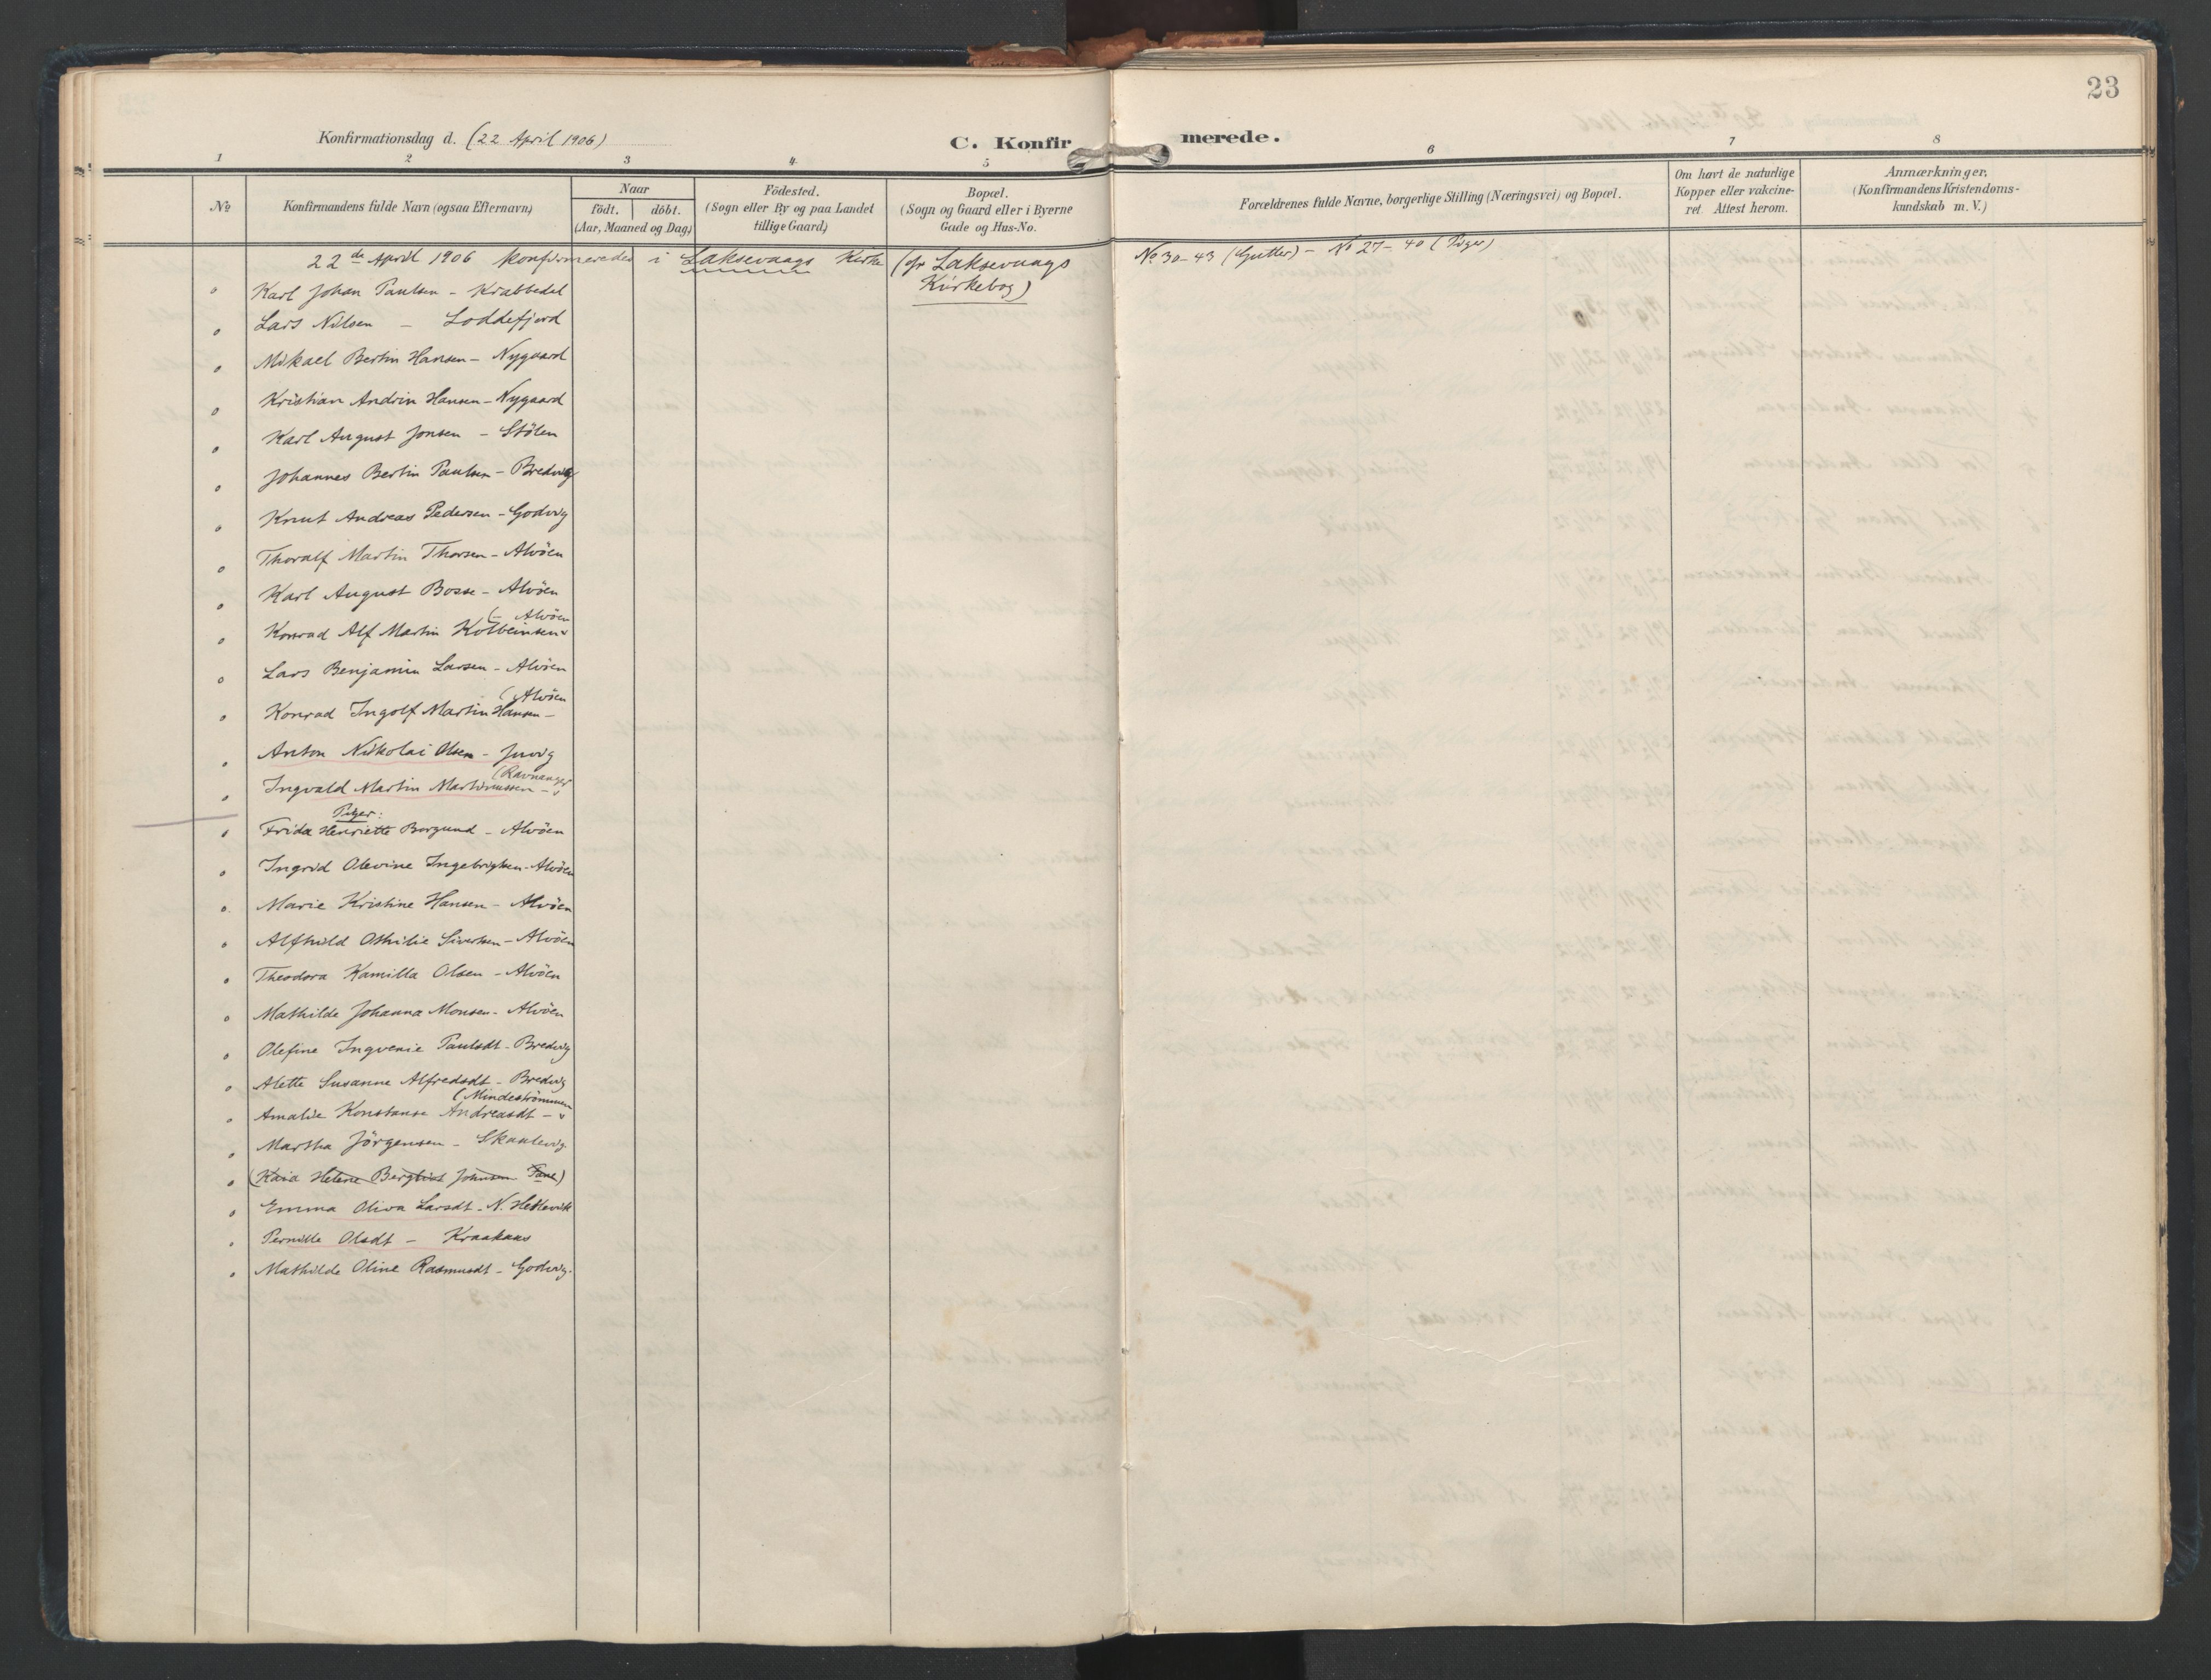 23
Konfirmationsdag d. (22 April 1906)
C. Konfirmerede.
1 2 3 4 5 6 7 8
No
Konfirmandens fulde Navn (ogsaa Efternavn)
Naar
födt. döbt.
(Aar, Maaned og Dag)
Födested.
(Sogn eller By og paa Landet
tillige Gaard)
Bopæl.
(Sogn og Gaard eller i Byerne
Gade og Hus-No.
Forældrenes fulde Navne, borgerlige Stilling (Næringsvei) og Bopæl.
Om havt de naturlige
Kopper eller vakcine-
ret. Attest herom.
Anmærkninger.
(Konfirmandens Kristendoms-
kundskab m. V.)
22de April 1906 konfirmereder i Laksevaags Kirke (cfr Laksevaags
Kirkebog)
No 30-43 (Gutter) - No 27-40 (Piger)
Karl Johan Paulsen - Krabbedal
Lars Nilsen - Loddefjord
Mikael Bertin Hansen - Nygaard
Kristian Andrin Hansen - Nygaard
Karl August Jonsen - Stölen
Johannes Bertin Paulsen - Bredvig
Knut Andreas Pedersen - Godvig
Thoralf Martin Thorsen - Alvöen
Karl August Bosse - Alvöen
Konrad Alf Martin Kolbeinsen (- Alvöen
Lars Benjamin Larsen - Alvöen
Konrad Ingolf Martin Hansen - (Alvöen
Anton Nikolai Olsen - Juvig
Ingvald Martin Martinussen - (Ravnanger
Piger:
Frida Henriette Borgund - Alvöen
Ingrid Olevine Ingebrigtsen - Alvöen
Marie Kristine Hansen - Alvöen
Alfhild Othilie Sivertsen - Alvöen
Theodora Kamilla Olsen - Alvöen
Mathilde Johanna Monsen - Alvöen
Olefine Ingvenie Paulsdt - Bredvig
Alette Susanne Alfredsdt - Bredvig
Amalie Konstanse Andreasdt - (Mindeströmmen
Martha Jörgensen - Skaalevig
(Kaia Helene Bergliot Johnsen Fane)
Emma Oliva Larsdt - N. Hetlevik
Pernille Olsdt - Kraakaas
Mathilde Oline Rasmusdt - Godvig.